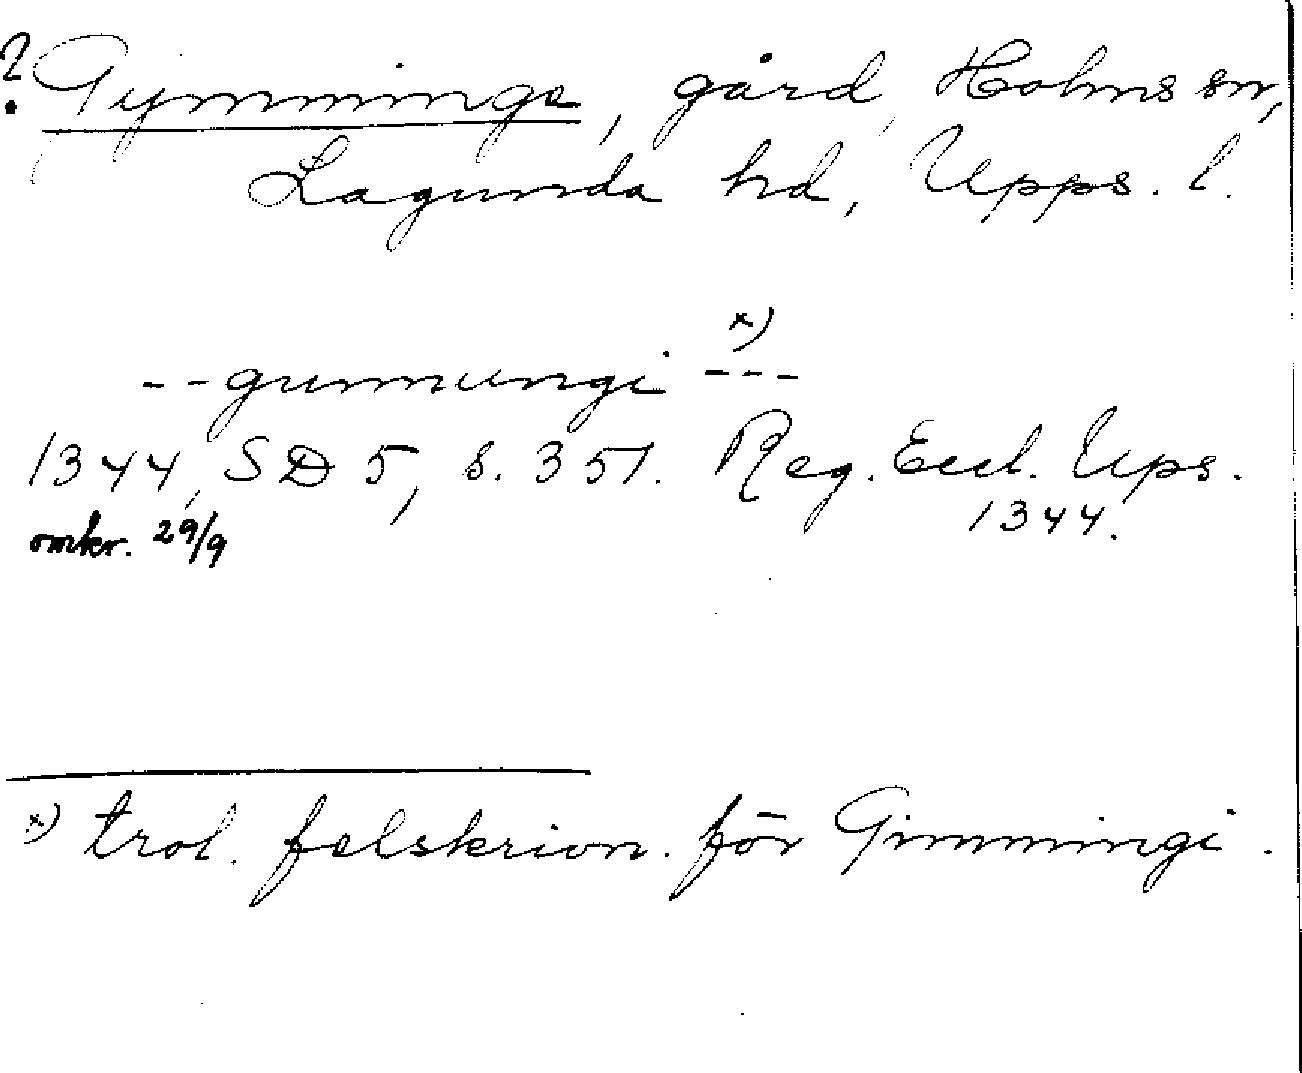 ? Gymminge, gård, Holms sn,
Lagunda hd, Upps. l.
--gummungi --- x)
1344, SD 5, s. 351. Reg. Eccl. Ups.
omkr. 29/9 1344.
x) trol. felskrivn. för Gimmingi.